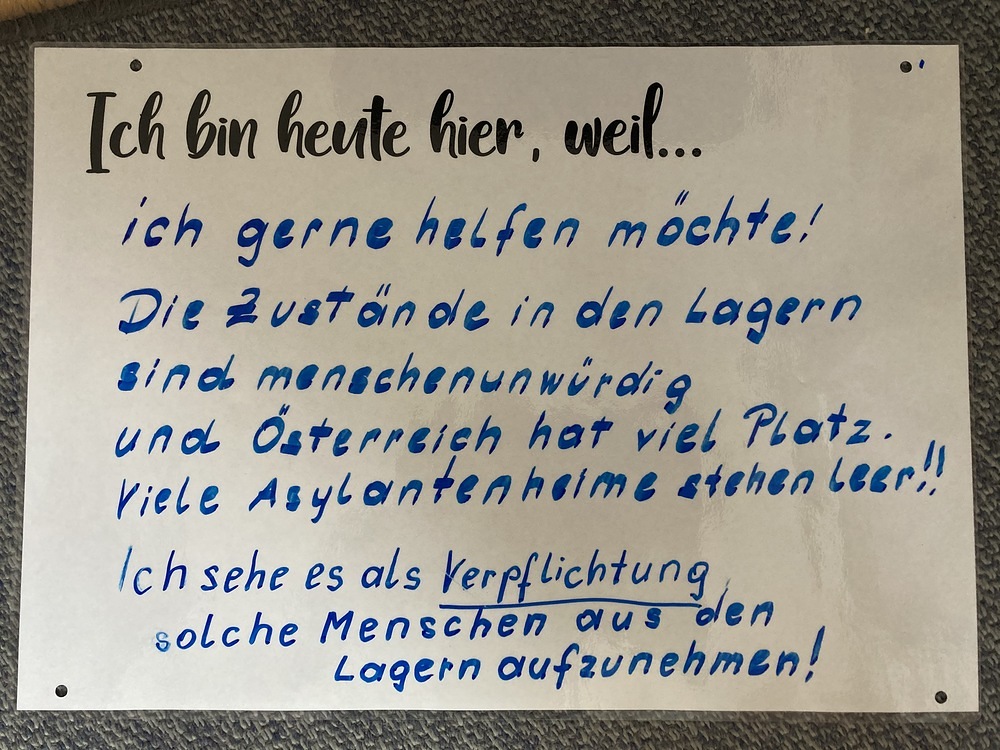 Ich bin heute hier, weil...
ich gerne helfen möchte!
Die Zustände in den Lagern
sind menschenunwürdig
und Österreich hat viel Platz.
Viele Asylantenheime stehen leer!!
Ich sehe es als Verpflichtung,
solche Menschen aus den
Lagern aufzunehmen!